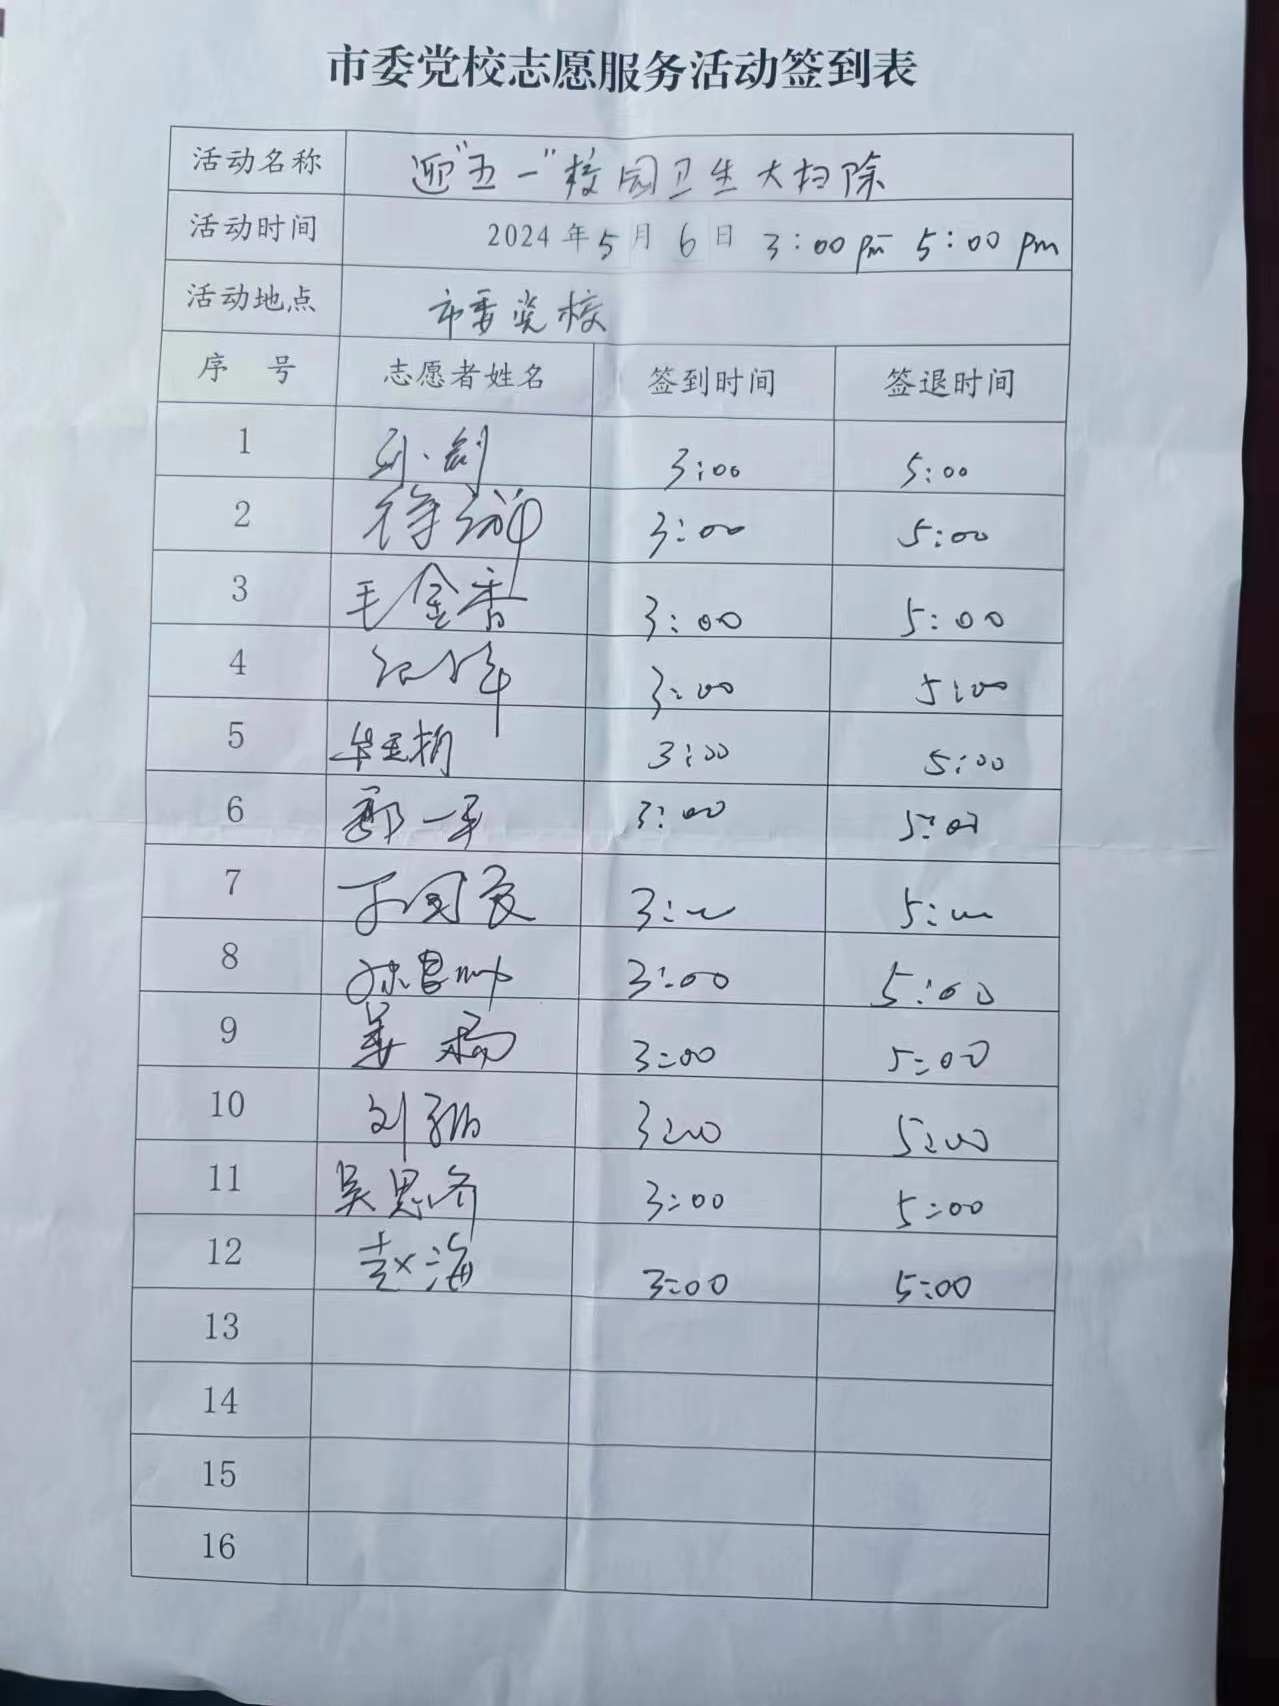 市委党校志愿服务活动签到表
活动名称 迎"五一"校园卫生大扫除
活动时间 2024年5月6日 3:00pm- 5:00pm
活动地点 市委党校
序 号 志愿者姓名 签到时间 签退时间
1 3:00 5:00
2 徐 3:00 5:00
3 毛金香 3:00 5:00
4 3:00 5:00
5 3:00 5:00
6 一平 3:00 5:00
7 3:00 5:00
8 3:00 5:00
9 姜杨 3:00 5:00
10 刘 3:00 5:00
11 吴思 3:00 5:00
12 赵海 3:00 5:00
13
14
15
16